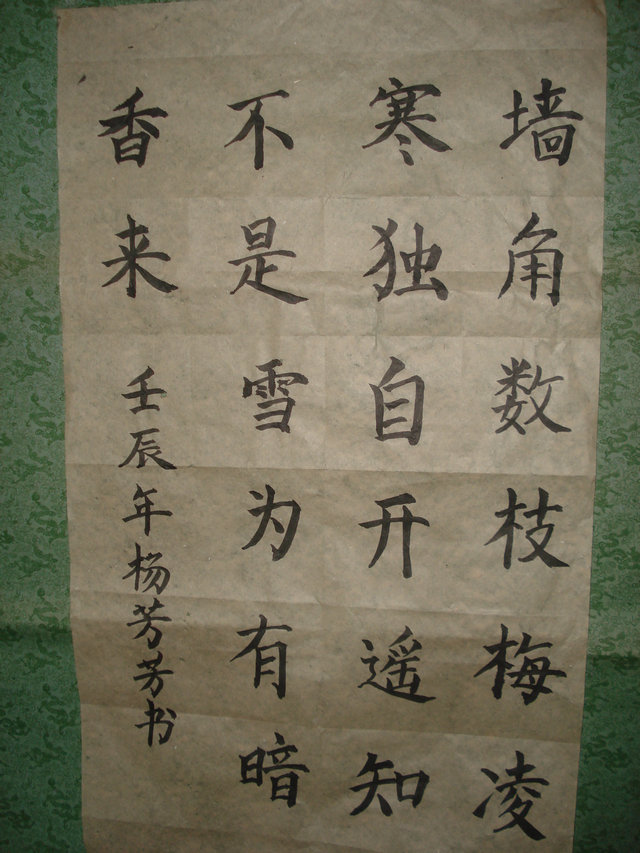 墙角数枝梅凌
寒独自开遥知
不是雪为有暗
香来
壬辰年杨芳芳书